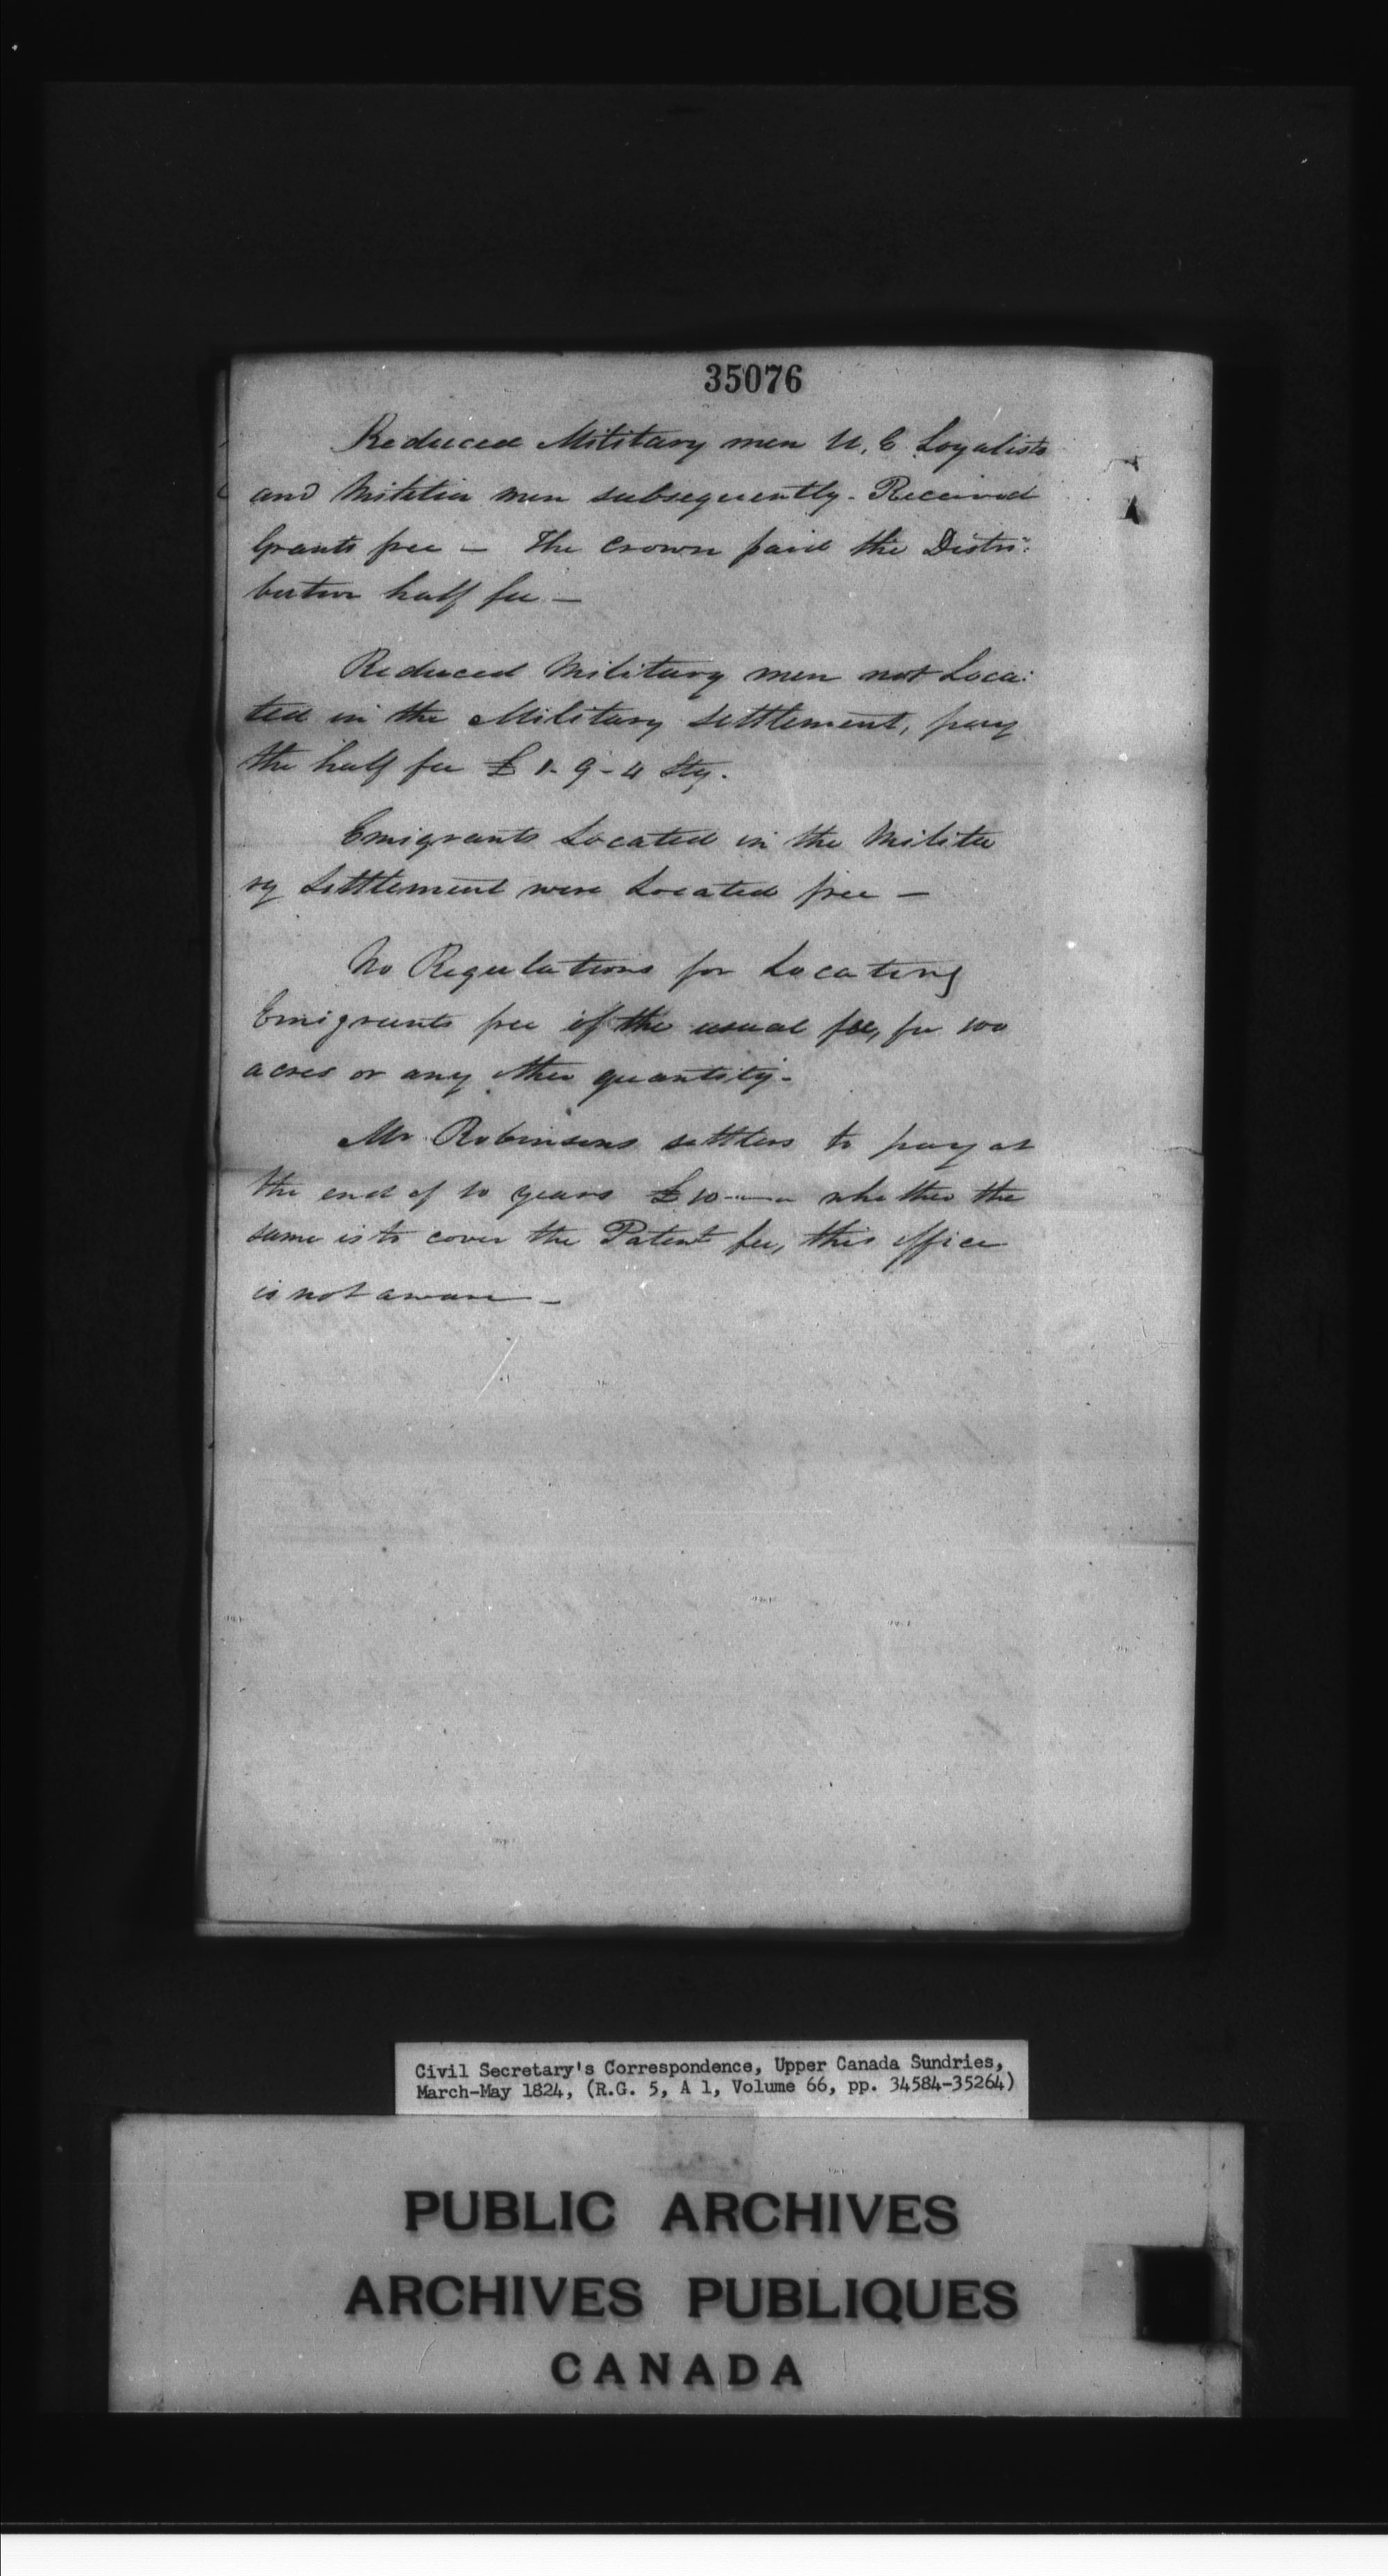 35076
Reduced Military men U. E Loyalists
and Militia men subsequently - Received
Grants free - The Crown paid the Distri:
bution half fee -
Reduced Military men not Loca:
ted in the Military Settlement, pay
the half fee £ 1. 9 - 4 Stg.
Emigrants Located in the Milita
ry Settlement were Located free -
No Regulations for Locating
Emigrants free of the usual fee, for 100
acres or any other quantity -
Mr. Robinsons settlers to pay at
the end of 10 years £ 10 whether the
same is to cover the Patent fee, this office
is not aware -
Civil Secretary's Correspondence, Upper Canada Sundries,
March-May 1824, (R.G. 5, A 1, Volume 66, pp. 34584-35264)
PUBLIC ARCHIVES
ARCHIVES PUBLIQUES
CANADA